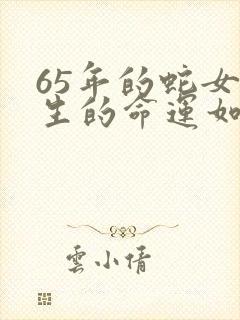 65年的蛇女
生的命運如
雲小倩